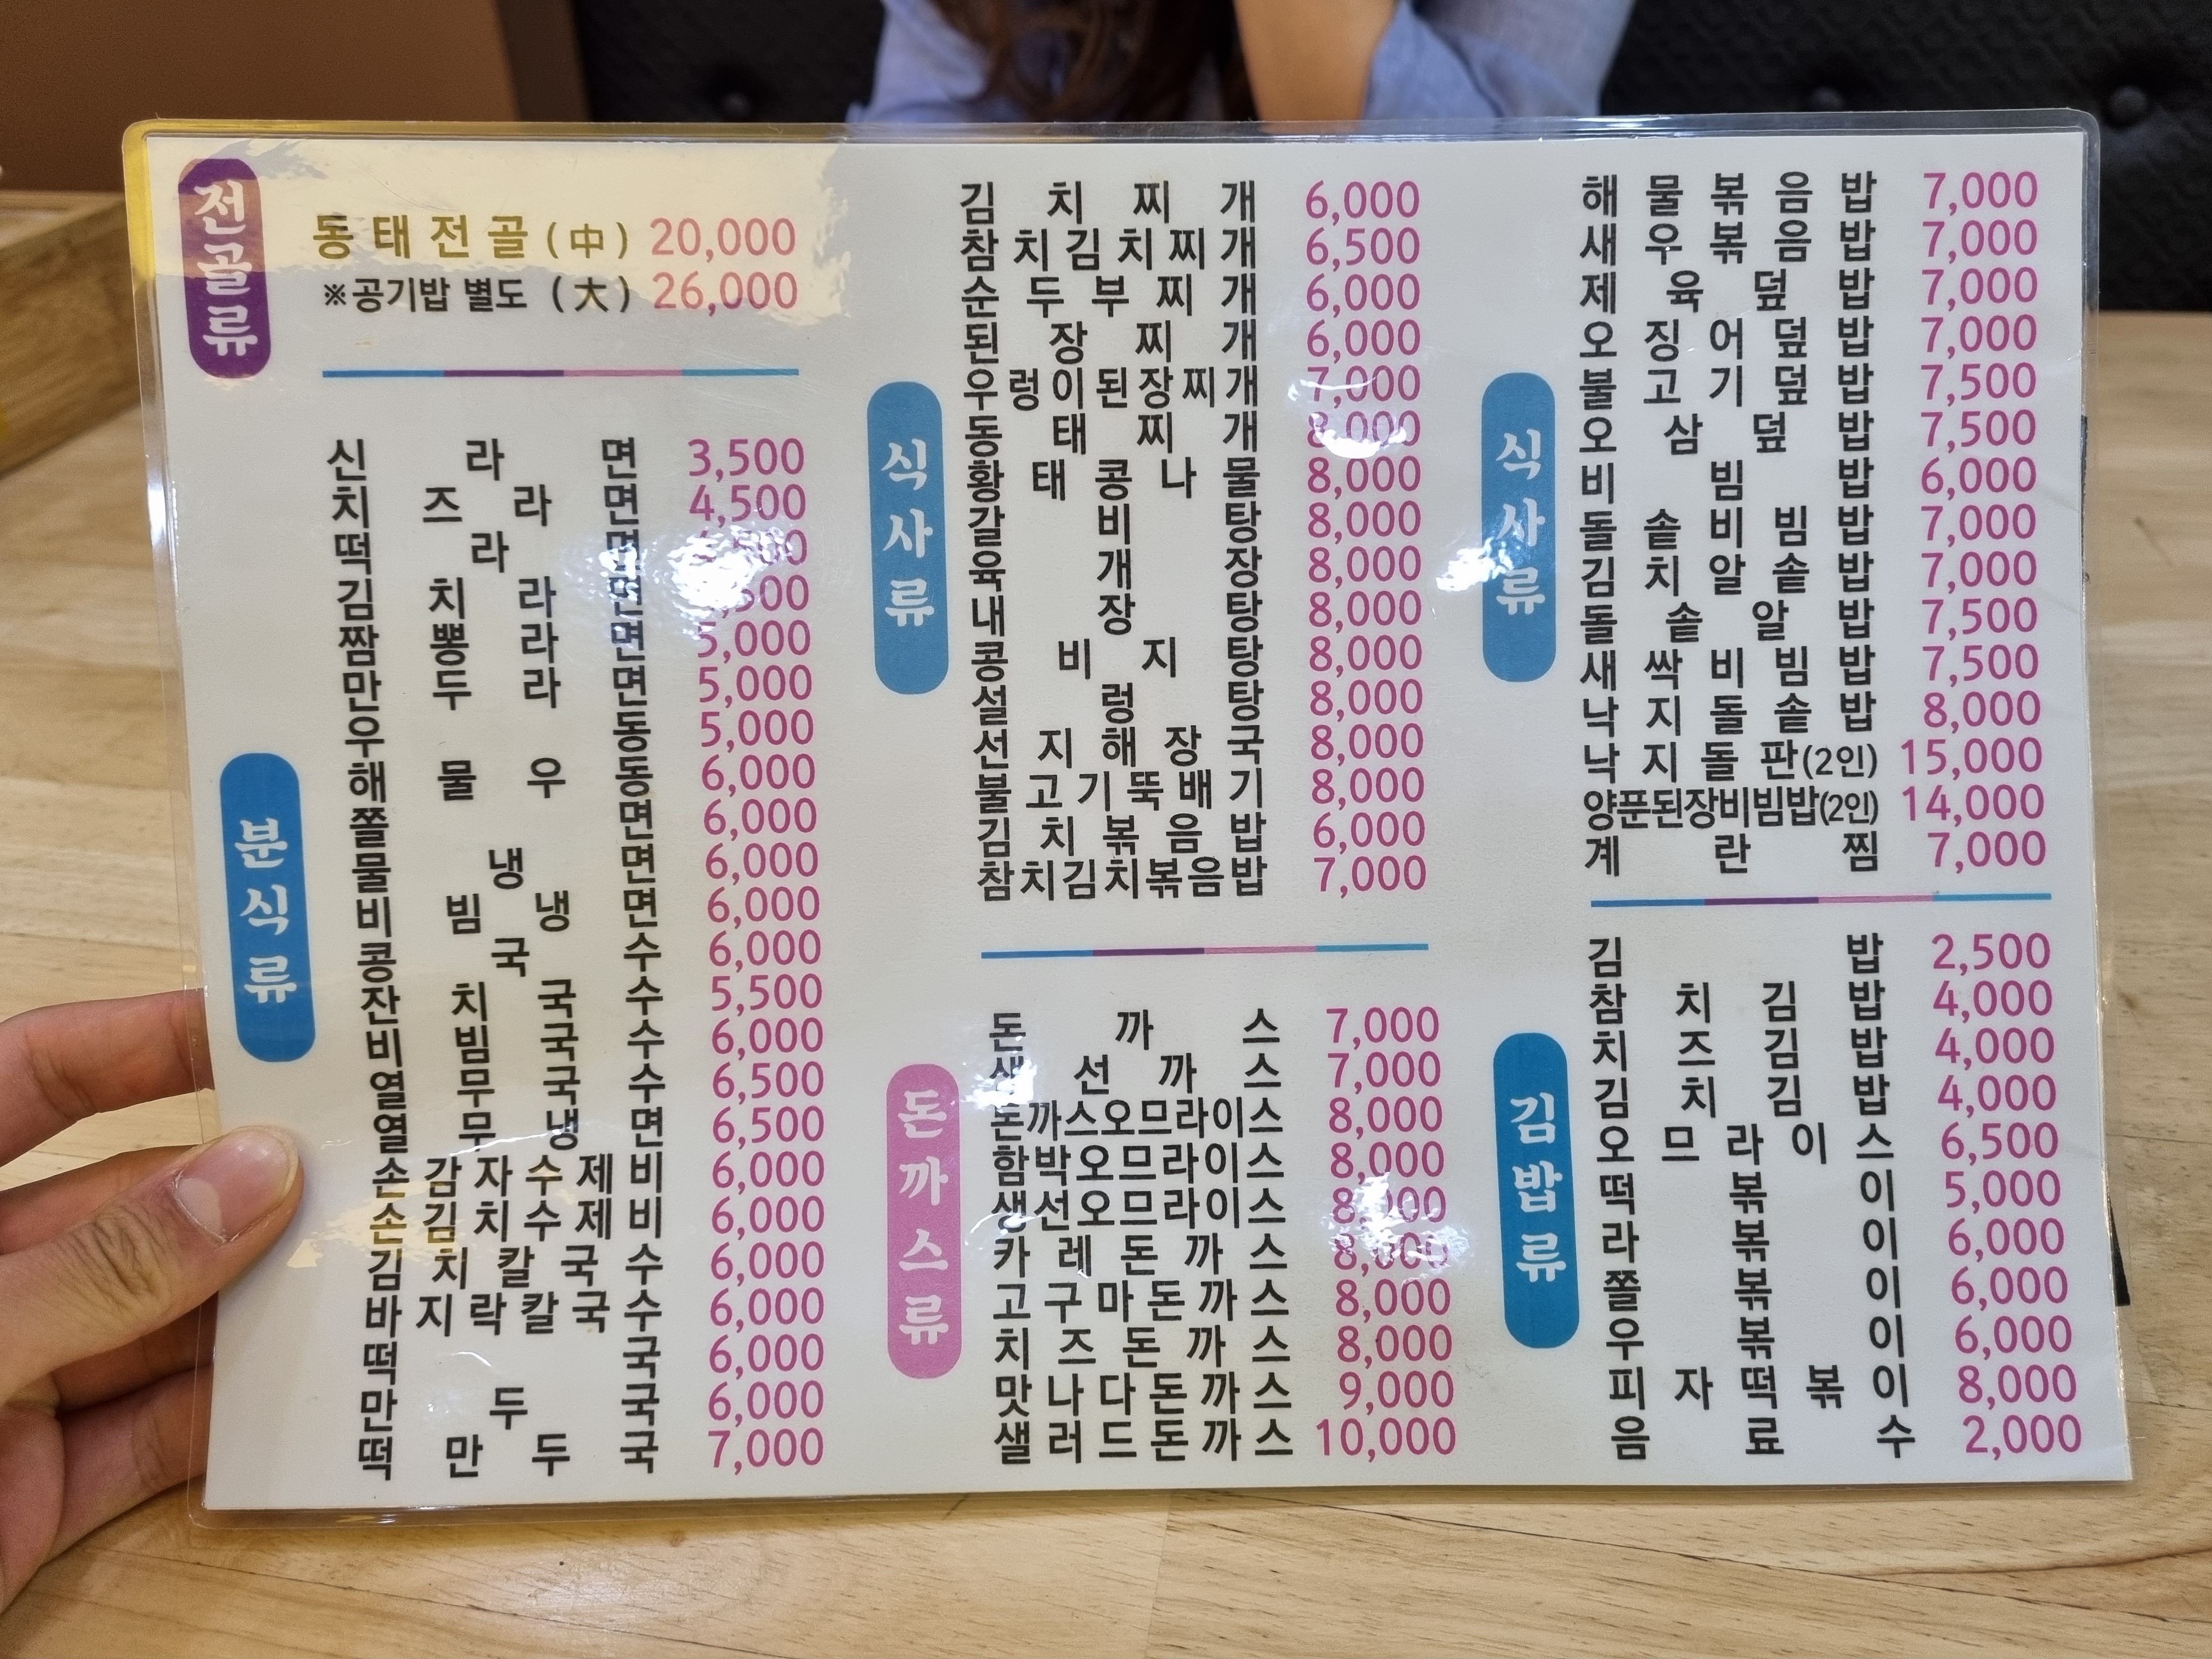 전골류
동태전골(中) 20,000
※공기밥 별도 (大) 26,000
분식류
신라면 3,500
치즈라면 4,500
떡라면
김치라면
짬뽕라면 5,000
만두라면 5,000
우동 5,000
해물우동 6,000
쫄면 6,000
물냉면 6,000
비빔냉면 6,000
콩국수 6,000
잔치국수 5,500
비빔국수 6,000
열무국수 6,500
열무냉면 6,500
손감자수제비 6,000
손김치수제비 6,000
김치칼국수 6,000
바지락칼국수 6,000
떡국 6,000
만두국 6,000
떡만두국 7,000
식사류
김치찌개 6,000
참치김치찌개 6,500
순두부찌개 6,000
된장찌개 6,000
우렁이된장찌개 7,000
동태찌개 8,000
황태콩나물 8,000
갈비탕 8,000
육개장 8,000
내장탕 8,000
콩비지탕 8,000
설렁탕 8,000
선지해장국 8,000
불고기뚝배기 8,000
김치볶음밥 6,000
참치김치볶음밥 7,000
돈까스류
돈까스 7,000
생선까스 7,000
돈까스오므라이스 8,000
함박오므라이스 8,000
생선오므라이스 8,000
카레돈까스 8,000
고구마돈까스 8,000
치즈돈까스 8,000
맛나다돈까스 9,000
샐러드돈까스 10,000
식사류
해물볶음밥 7,000
새우볶음밥 7,000
제육덮밥 7,000
오징어덮밥 7,000
불고기덮밥 7,500
오삼덮밥 7,500
비빔밥 6,000
돌솥비빔밥 7,000
김치알솥밥 7,000
돌솥알밥 7,500
새싹비빔밥 7,500
낙지돌솥밥 8,000
낙지돌판(2인) 15,000
양푼된장비빔밥(2인) 14,000
계란찜 7,000
김밥류
김밥 2,500
참치김밥 4,000
치즈김밥 4,000
김치김밥 4,000
오므라이스 6,500
떡볶이 5,000
라볶이 6,000
쫄볶이 6,000
우볶이 6,000
피자떡볶이 8,000
음료수 2,000